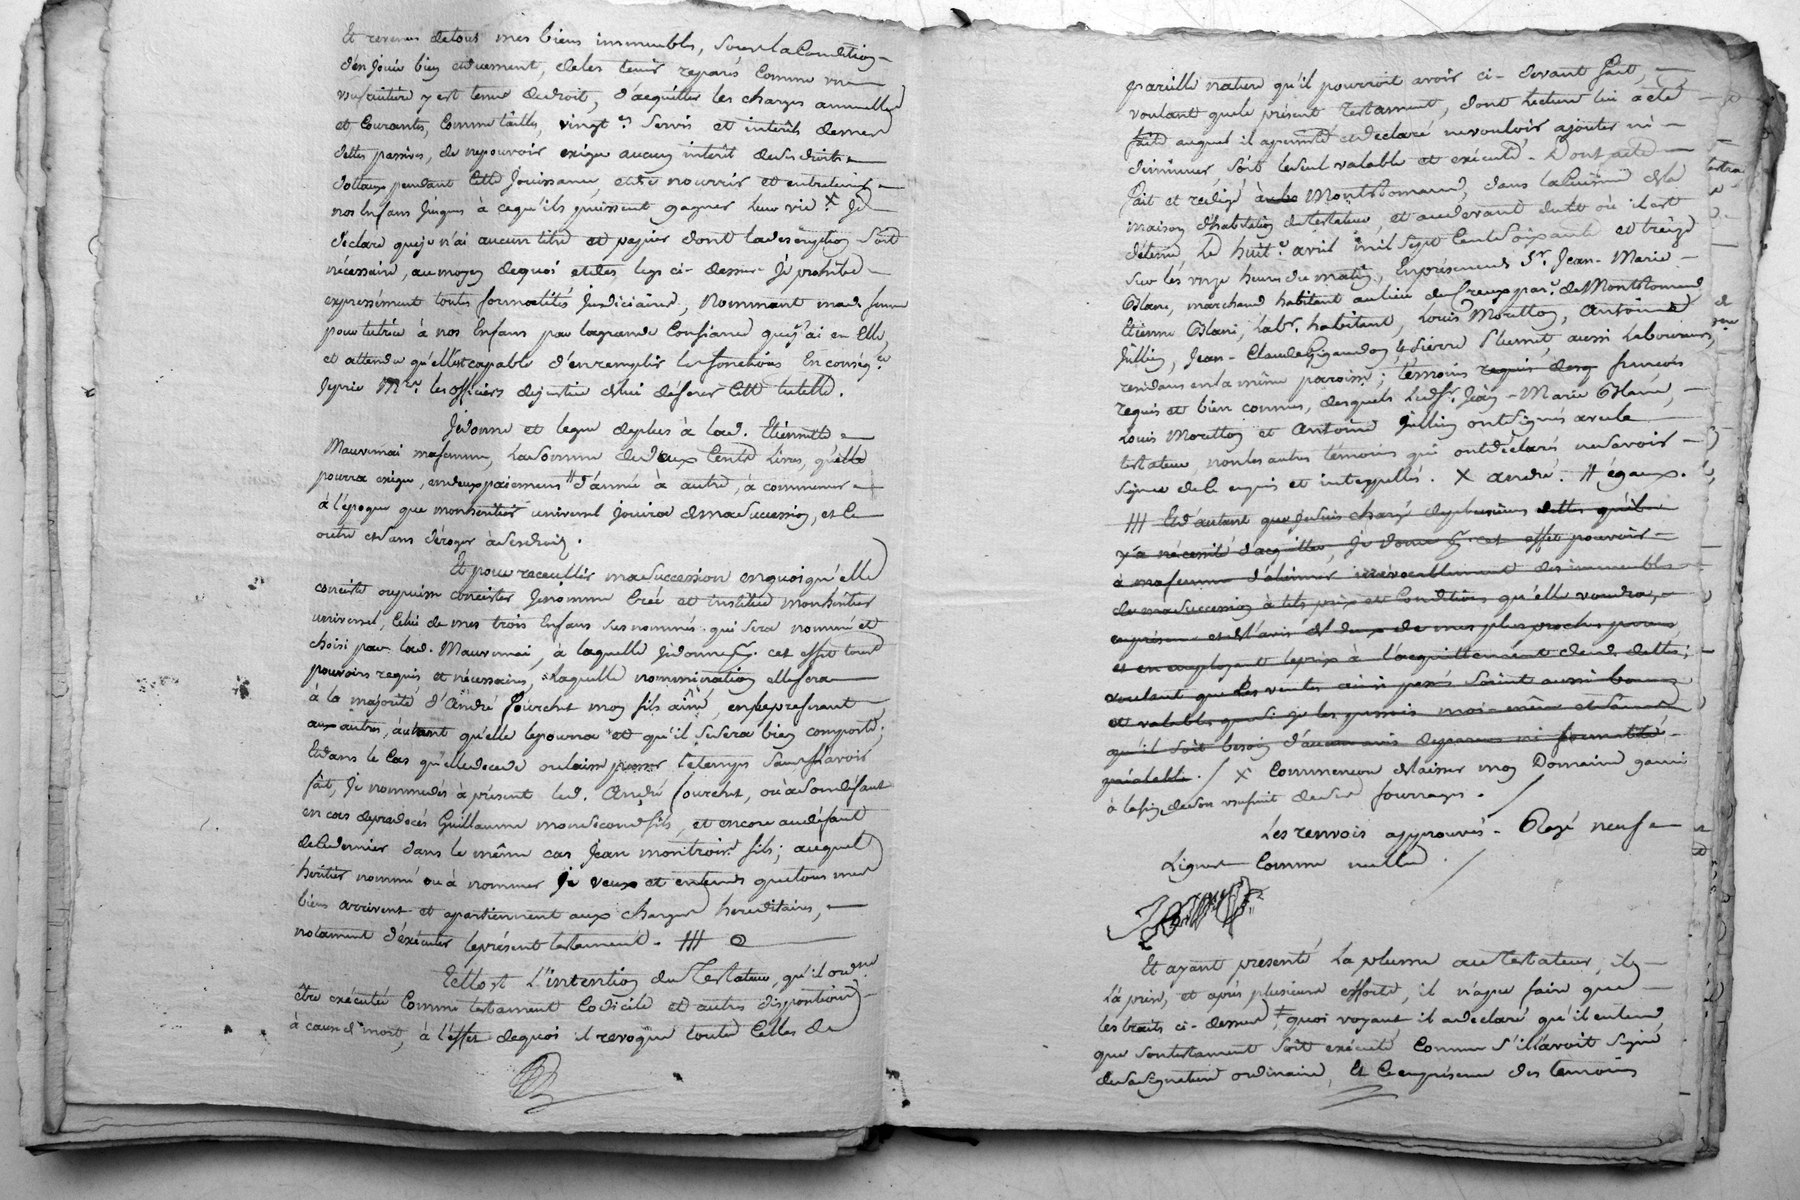 Et revenus detous mes biens immeubles, sous la Condition
d'en jouir bien etduement, deles tenir reparés Comme une
usufruitiere y est tenue dedroit, d'acquitter les charges annuelles
et Courantes, Comme tailles, vingt.es Servis et interêts demes
dettes passives, de nepouvoir exiger aucun interêt desesdroits
dottaux pendant Cette Jouissance, etde nourrir et entretenir
nos Enfans Jusques à cequ'ils puissent gagner leur vie. X Je
declare queje n'ai aucun titre et papier dont ladescription soit
nécessaire, au moyen dequoi etdes legs ci-dessus Je prohibe
expressément toutes formalités judiciaires, Nommant mad. femme
pour tutrice à nos Enfans par lagrande Confiance quej'ai en Elle,
et attendu qu'elleest capable d'enremplir les fonctions En conséq.ce
Jeprie M.rs les officiers dejustice delui déferer Cette tutelle.
Jedonne et legue deplus à lad. Etiennette
Mauvernai mafemme, Lasomme dedeux Cents Livres, qu'elle
pourra exiger, endeuxpaiemens # d'année à autre, à commencer
à l'époque que monheritier universel jouira demasuccession, et Ce
outre etsans déroger àsesdroits.
Et pour receuillir masuccession enquoiqu'elle
consiste oupuisse consister Jenomme Créé et institue monheritier
universel, Celui de mes trois Enfans susnommés qui sera nommé et
choisi par lad. Mauvernai, à laquelle Jedonne cet effet tout
pouvoirs requis et nécessaires, Laquelle nommination ellefera
à la majorité d'André fourchet mon fils aîné, enlepreferant
aux autres, autant qu'elle lepourra et qu'il sesera bien comporté;
Etdans le Cas qu'elledecede oulaisse passer letemps sans l'avoir
fait, Je nommedès à présent led. André fourchet, ou àsondéfaut
encas depredecès Guillaume monsecondfils, et encore audéfaut
decedernier dans le même cas Jean montroise. fils; auquel
héritier nommé ou à nommer Je veux et entends quetous mes
biens arrivent et apartiennent aux charges hereditaires,
notament d'exécuter leprésent testament. ///
Telleest L'intention du Testateur, qu'il ordne
être exécutée Comme testament Codicile et autres dispositions
à cause de mort, à l'effet dequoi il revoque toutes Celles de
pareille nature qu'il pourroit avoir ci-devant fait,
voulant quele présent Testament, dont Lecture lui a été
faite auquel il apersisté etdeclaré nevouloir ajouter ni
diminuer soit leseul valable et exécuté. Dont acte
fait et rédigé Montromand, dans laCuisine dela
maison d'habitation dutestateur, et audevant dulit où il est
détenu Le huit.e avril mil sept Centsoixante et treize
sur les onze heures dumatin, Enprésences de S.r Jean-Marie
Blanc, marchand habitant aulieu du Creux par.e deMontromand
Etienne Blanc, Lab.r habitant, Louis Moretton, Antoine
Jullien, Jean-Claude & Pierre Plumet, aussi Laboureurs,
residans en la même paroisse; témoins
requis et bien connus, desquels Led. S.r Jean-Marie Blanc,
Louis Moretton et Antoine Jullien ont signés avecle
testateur, nonles autres témoins qui ontdéclarés nesavoir
signer dece enquis et interpellés. X andré. # égaux.
/// Etd'autant queJesuis chargé deplusieurs dettes qu'il
y'a nécessité d'acquitter, Je donne cet effet pouvoir
à mafemme d'aliener irrévocablement desimmeubles
de masuccession à tels prix et Conditions qu'elle voudra,
de mes plus proches parens
et en employant leprix à l'acquittement desd. dettes;
voulant que Les ventes ainsi passées soient aussi bonnes
et valables que si je les passois moi-même et sans
qu'il soit besoin d'aucun avis deparens ni formalité
préalable. / X Commencera delaisser mon Domaine garni
à lafin deson usufruit deses fourrages. /
Les renvois approuvés. Rayé neuf
Lignes Comme nulles. /
Et ayant presenté La plume autestateur, il
l'a prise, et après plusieurs efforts, il n'apu faire que
les traits ci-dessus, quoi voyant il adeclaré qu'il entend
que sontestament soit exécuté Comme s'il l'avoit signé
desasignature ordinaire, Et Ce enprésence des temoins